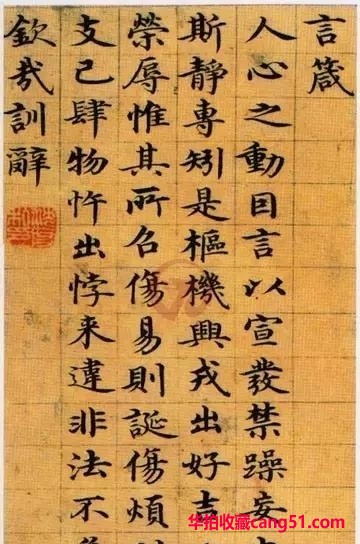 言箴
人心之動囙言以宣發禁躁妄
斯靜專矧是樞機興戎出好吉
榮辱惟其所召傷易則誕傷煩
支己肆物忤出悖来違非法不
欽哉訓辭
华拍收藏cang51.com